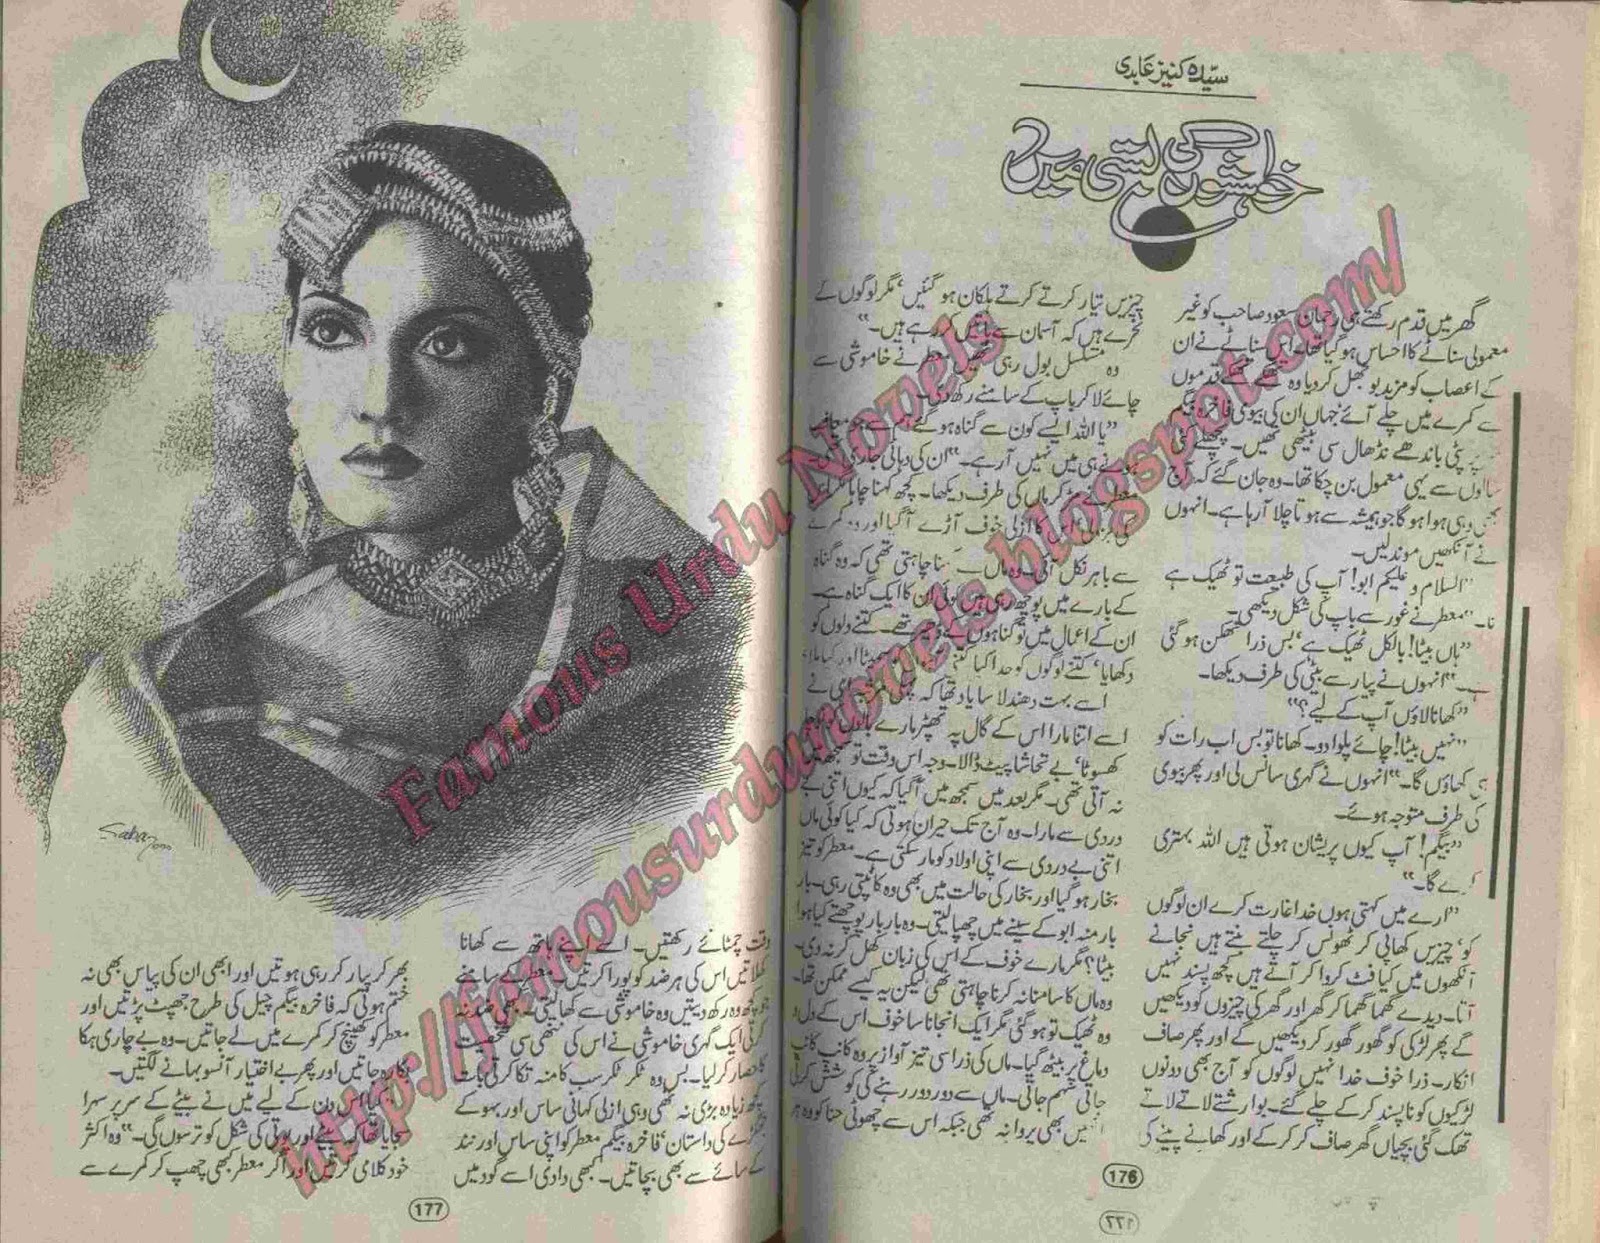 سیّدہ کنیز عابدی
خواہشوں کی بستی میں
گھر میں قدم رکھتے ہی رحمان مسعود صاحب کو غیر
معمولی سناٹے کا احساس ہو گیا تھا۔ اس سناٹے نے ان
کے اعصاب کو مزید بوجھل کر دیا وہ تھکے تھکے قدموں
سے کمرے میں چلے آئے جہاں ان کی بیوی فاخرہ بیگم
سر پر پٹی باندھے نڈھال سی بیٹھی تھیں۔ پچھلے کئی
سالوں سے یہی معمول بن چکا تھا۔ وہ جان گئے کہ آج
بھی وہی ہوا ہو گا جو ہمیشہ سے ہوتا چلا آ رہا ہے۔ انہوں
نے آنکھیں موند لیں۔
”السلام و علیکم ابو! آپ کی طبیعت تو ٹھیک ہے
نا۔“ معطر نے غور سے باپ کی شکل دیکھی۔
”ہاں بیٹا! بالکل ٹھیک ہے‘ بس ذرا تھکن ہو گئی
ہے۔“ انہوں نے پیار سے بیٹی کی طرف دیکھا۔
”کھانا لاؤں آپ کے لیے؟“
”نہیں بیٹا! چائے پلوا دو۔ کھانا تو بس اب رات کو
ہی کھاؤں گا۔“ انہوں نے گہری سانس لی اور پھر بیوی
کی طرف متوجہ ہوئے۔
”بیگم! آپ کیوں پریشان ہوتی ہیں اللہ بہتری
کرے گا۔“
”ارے میں کہتی ہوں خدا غارت کرے ان لوگوں
کو‘ چیزیں کھا پی کر ٹھونس کر چلتے بنتے ہیں نجانے
آنکھوں میں کیا فٹ کروا کر آتے ہیں کچھ پسند نہیں
آتا۔ دیدے گھما گھما کر گھر اور گھر کی چیزوں کو دیکھیں
گے پھر لڑکی کو گھور گھور کر دیکھیں گے اور پھر صاف
انکار۔ ذرا خوف خدا نہیں لوگوں کو آج بھی دونوں
لڑکیوں کو نا پسند کر کے چلے گئے۔ بوا رشتے لاتے لاتے
تھک گئی بچیاں گھر صاف کر کر کے اور کھانے پینے کی
چیزیں تیار کرتے کرتے ہلکان ہو گئیں‘ مگر لوگوں کے
نخرے ہیں کہ آسمان سے باتیں کر رہے ہیں۔“
وہ مسلسل بول رہی تھیں معطر نے خاموشی سے
چائے لا کر باپ کے سامنے رکھ دی۔
”یا اللہ ایسے کون سے گناہ ہو گئے ہم سے جو معاف
ہونے ہی میں نہیں آ رہے۔“ ان کی دہائی جاری
معطر نے مڑ کر ماں کی طرف دیکھا۔ کچھ کہنا چاہا مگر
اس کا ازلی خوف آڑے آ گیا اور وہ کمرے
سے باہر نکل آئی۔ وہ ماں سے کہنا چاہتی تھی کہ وہ گناہ
کے بارے میں پوچھ رہی ہیں کوئی ان کا ایک گناہ ہے۔
ان کے اعمال میں تو گناہوں کے تھے۔ کتنے دلوں کو
دکھایا‘ کتنے لوگوں کو جدا کیا
اسے بہت دھندلا سا یاد تھا کہ نے
اسے اتنا مارا اس کے گال پہ تھپڑ مارے بالوں
کھسوٹا‘ بے تحاشا پیٹ ڈالا۔ وجہ اس وقت تو سمجھ
نہ آتی تھی۔ مگر بعد میں سمجھ میں آ گیا کہ کیوں اتنی بے
دردی سے مارا۔ وہ آج تک حیران ہوتی کہ کیا کوئی ماں
اتنی بے دردی سے اپنی اولاد کو مار سکتی ہے۔ معطر کو تیز
بخار ہو گیا اور بخار کی حالت میں بھی وہ کانپتی رہی۔ بار
بار منہ ابو کے سینے میں چھپا لیتی۔ وہ بار بار پوچھتے کیا ہوا
بیٹا؟ مگر مارے خوف کے اس کی زبان کھل کر نہ دی۔
وہ ماں کا سامنا نہ کرنا چاہتی تھی لیکن یہ کیسے ممکن تھا۔
وہ ٹھیک تو ہو گئی مگر ایک انجانا سا خوف اس کے دل و
دماغ پر بیٹھ گیا۔ ماں کی ذرا سی تیز آواز پر وہ کانپ کانپ
جاتی سہم جاتی۔ ماں سے دور دور رہنے کی کوشش کرتی
انہیں بھی پروا نہ تھی جبکہ اس سے چھوٹی حنا کو وہ ہر
176
وقت چمٹائے رکھتیں۔ اسے اپنے ہاتھ سے کھانا
کھلاتیں اس کی ہر ضد کو پورا کرتیں۔ معطر کے سامنے
جو کچھ وہ رکھ دیتیں وہ خاموشی سے کھا لیتی۔ کبھی ضد نہ
کرتی ایک گہری خاموشی نے اس کی ننھی سی شخصیت
کا حصار کر لیا۔ بس وہ ٹکر ٹکر سب کا منہ تکا کرتی بات
کچھ زیادہ بڑی نہ تھی وہی ازلی کہانی ساس اور بہو کے
جھگڑے کی داستان‘ فاخرہ بیگم معطر کو اپنی ساس اور نند
کے سائے سے بھی بچاتیں۔ کبھی دادی اسے گود میں
بھر کر پیار کر رہی ہوتیں اور ابھی ان کی پیاس بھی نہ
ختم ہوئی کہ فاخرہ بیگم چیل کی طرح جھپٹ پڑتیں اور
معطر کو کھینچ کر کمرے میں لے جاتیں۔ وہ بے چاری ہکا
بکا رہ جاتیں اور پھر بے اختیار آنسو بہانے لگتیں۔
”کیا اس دن کے لیے میں نے بیٹے کے سر پر سہرا
سجایا تھا کہ بیٹے اور پوتی کی شکل کو ترسوں گی۔“ وہ اکثر
خود کلامی کرتیں اور اگر معطر کبھی چھپ کر کمرے سے
177
Famous Urdu Novels
http://famousurdunovels.blogspot.com/